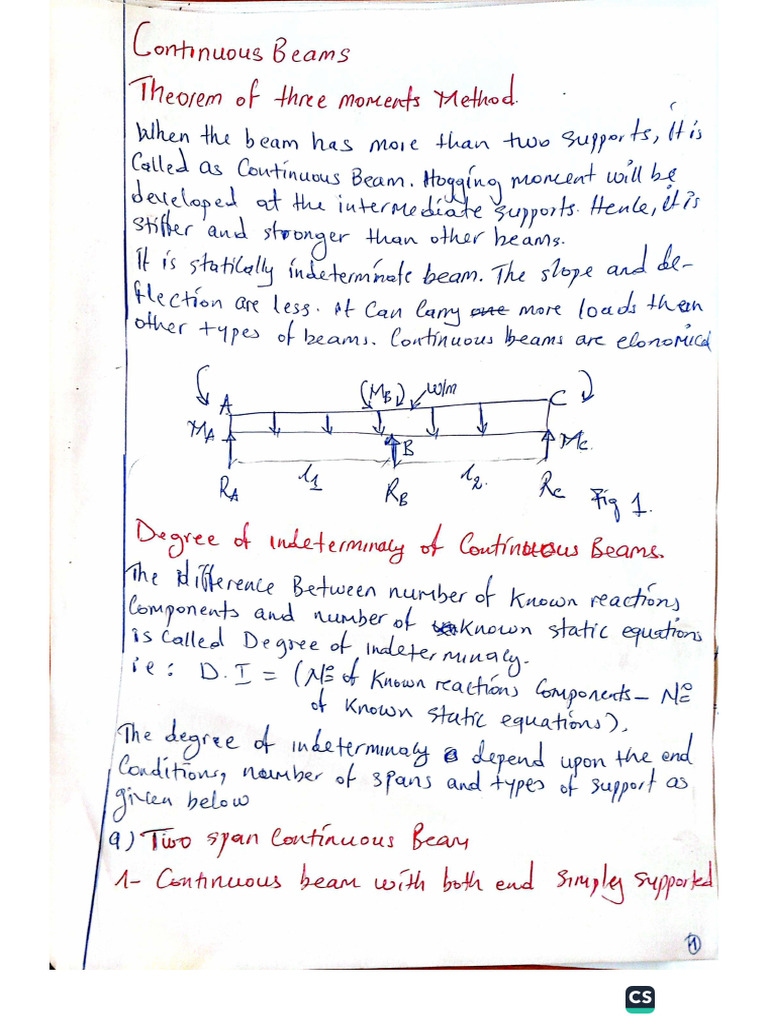 Continuous Beams
Theorem of three moments Method.
When the beam has more than two supports, It is
Called as Continuous Beam. Hogging moment will be
developed at the intermediate supports. Hence, it is
stiffer and stronger than other beams.
It is statically indeterminate beam. The slope and de-
flection are less. It Can Carry more loads than
other types of beams. Continuous beams are economical
(MB) w/m
A C
MA B MC
l1 l2
RA RB RC Fig 1.
Degree of indeterminacy of Continuous Beams.
The difference Between number of Known reactions
Components and number of Known static equations
is Called Degree of indeterminacy.
ie: D.I = (No of Known reactions Components - No
of Known static equations).
The degree of indeterminacy depend upon the end
Conditions, number of spans and types of support as
given below
a) Two span Continuous Beam
1- Continuous beam with both end simply supported
1
CS